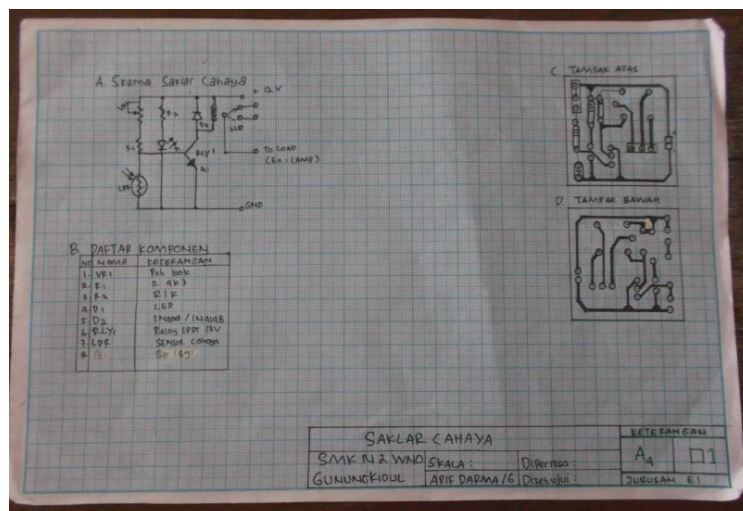 A. Skema Saklar Cahaya
+ 12 V
R2
R1
D2
RLY1
TO LOAD
(Ex : LAMP)
LDR
GND
B. DAFTAR KOMPONEN
NO NAMA KETERANGAN
1. VR1 Pot 60k
2. R1 R 4K7
3. R2 R 1 K
4. D1 LED
5. D2
6. RLY1 Relay SPDT 12V
7. LDR SENSOR Cahaya
8
C. TAMPAK ATAS
D. TAMPAK BAWAH
SAKLAR CAHAYA
SMK N 2 WNO
GUNUNGKIDUL
SKALA :
ARIF DARMA / 6
Diperiksa :
Disetujui :
KETERANGAN
A4
01
JURUSAN EI